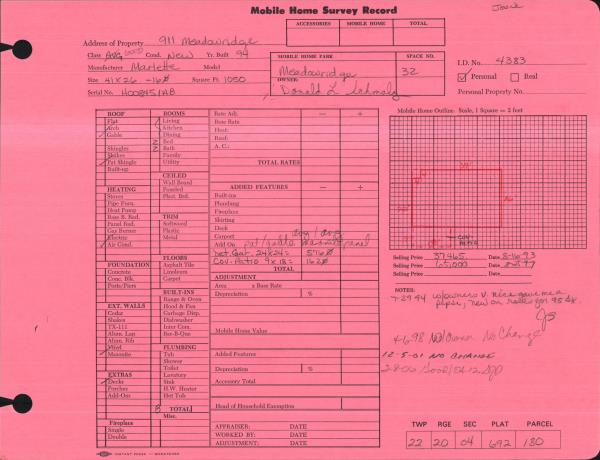 Mobile Home Survey Record
ACCESSORIES MOBILE HOME TOTAL
Address of Property 911 Meadowridge
Class AVG (Good) Cond. New Yr. Built 94
Manufacturer Marlette Model
Size 41X26 -16 Square Ft. 1050
Serial No. H008451AB
MOBILE HOME PARK SPACE NO.
Meadowridge 32
OWNER:
Donald L Schmalz
I.D. No. 4383
Personal Real
Personal Property No.
ROOF
Flat
Arch
Gable
Shingles
Shakes
Pat Shingle
Built-up
HEATING
Stores
Pipe Furn.
Heat Pump
Base B. Rad.
Panel Rad.
Gas Burner
Electric
Air Cond.
FOUNDATION
Concrete
Conc. Blk.
Posts/Piers
EXT. WALLS
Cedar
Shakes
TX-111
Alum. Lap
Alum. Rib
Plwd
Masonite
EXTRAS
Decks
Porches
Add-Ons
Fireplace
Single
Double
ROOMS
Living
Kitchen
Dining
Bed
Bath
Family
Utility
CEILED
Wall Board
Paneled
Plast. Brd.
TRIM
Softwood
Plastic
Metal
FLOORS
Asphalt Tile
Linoleum
Carpet
BUILT-INS
Range & Oven
Hood & Fan
Garbage Disp.
Dishwasher
Inter Com.
Bar-B-Que
PLUMBING
Tub
Shower
Toilet
Lavatory
Sink
H.W. Heater
Hot Tub
8 TOTAL
Misc.
Rate Adj. — +
Base Rate
Heat:
Roof:
A. C.:
TOTAL RATES
ADDED FEATURES — +
Built-ins
Plumbing
Fireplace
Skirting
Deck
Carport
Add On
24X24=
Cov. Patio 9X18=
TOTAL
ADJUSTMENT
Area x Base Rate
Depreciation %
Mobile Home Value
Added Features
Depreciation %
Accessory Total
Head of Household Exemption
APPRAISER: DATE
WORKED BY: DATE
ADJUSTMENT: DATE
Mobile Home Outline Scale, 1 Square = 2 feet
COV.
PATIO
Selling Price 37,465 Date 8-16-93
Selling Price 65,000 Date
Selling Price Date
NOTES:
4-6-98 No Change
12-5-01 NO CHANGE
TWP RGE SEC PLAT PARCEL
22 20 04 692 180